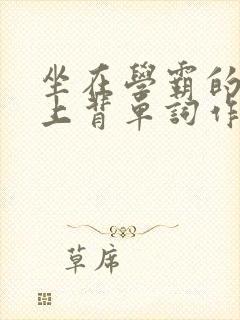 坐在學霸的
上背單詞作
草席